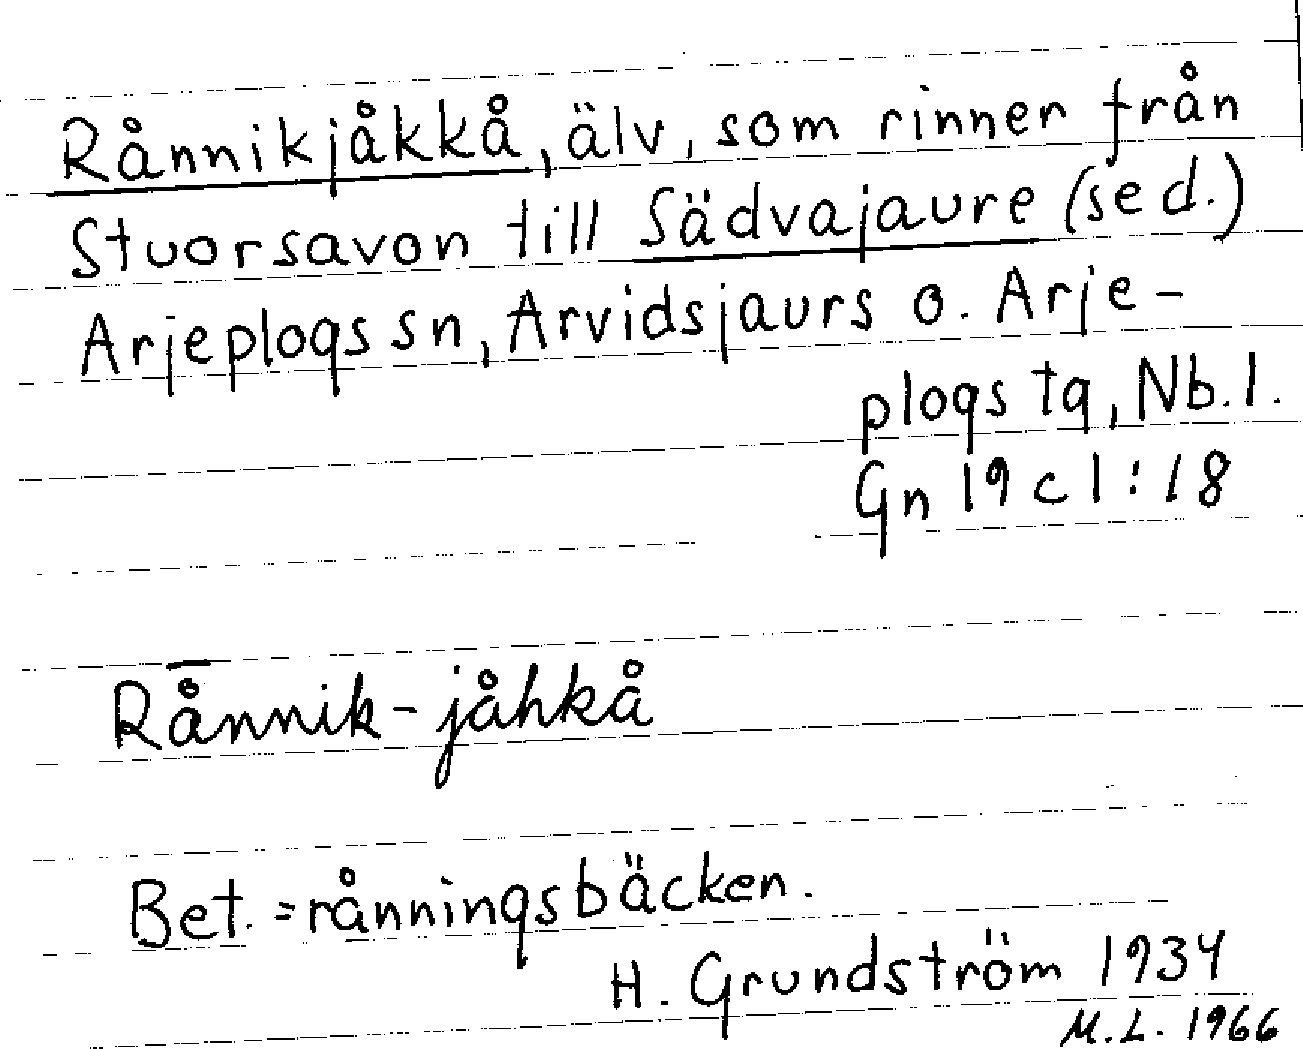 Rånnikjåkkå, älv, som rinner från
Stuorsavon till Sädvajaure (se d.)
Arjeplogs sn, Arvidsjaurs o. Arje-
plogs tg, Nb. l.
Gn 19 c 1:18
Rå̄nnik-jåhkå
Bet. = rånningsbäcken.
H. Grundström 1934
M.L. 1966